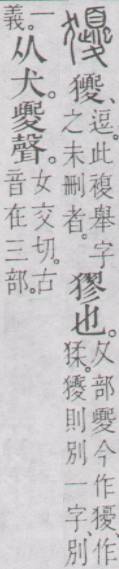 獿、逗。此複舉字之未刪者。㺒也。夂部夒今作獶、作猱。獿則別一字、別
一義。从犬。夒聲。女交切。古音在三部。